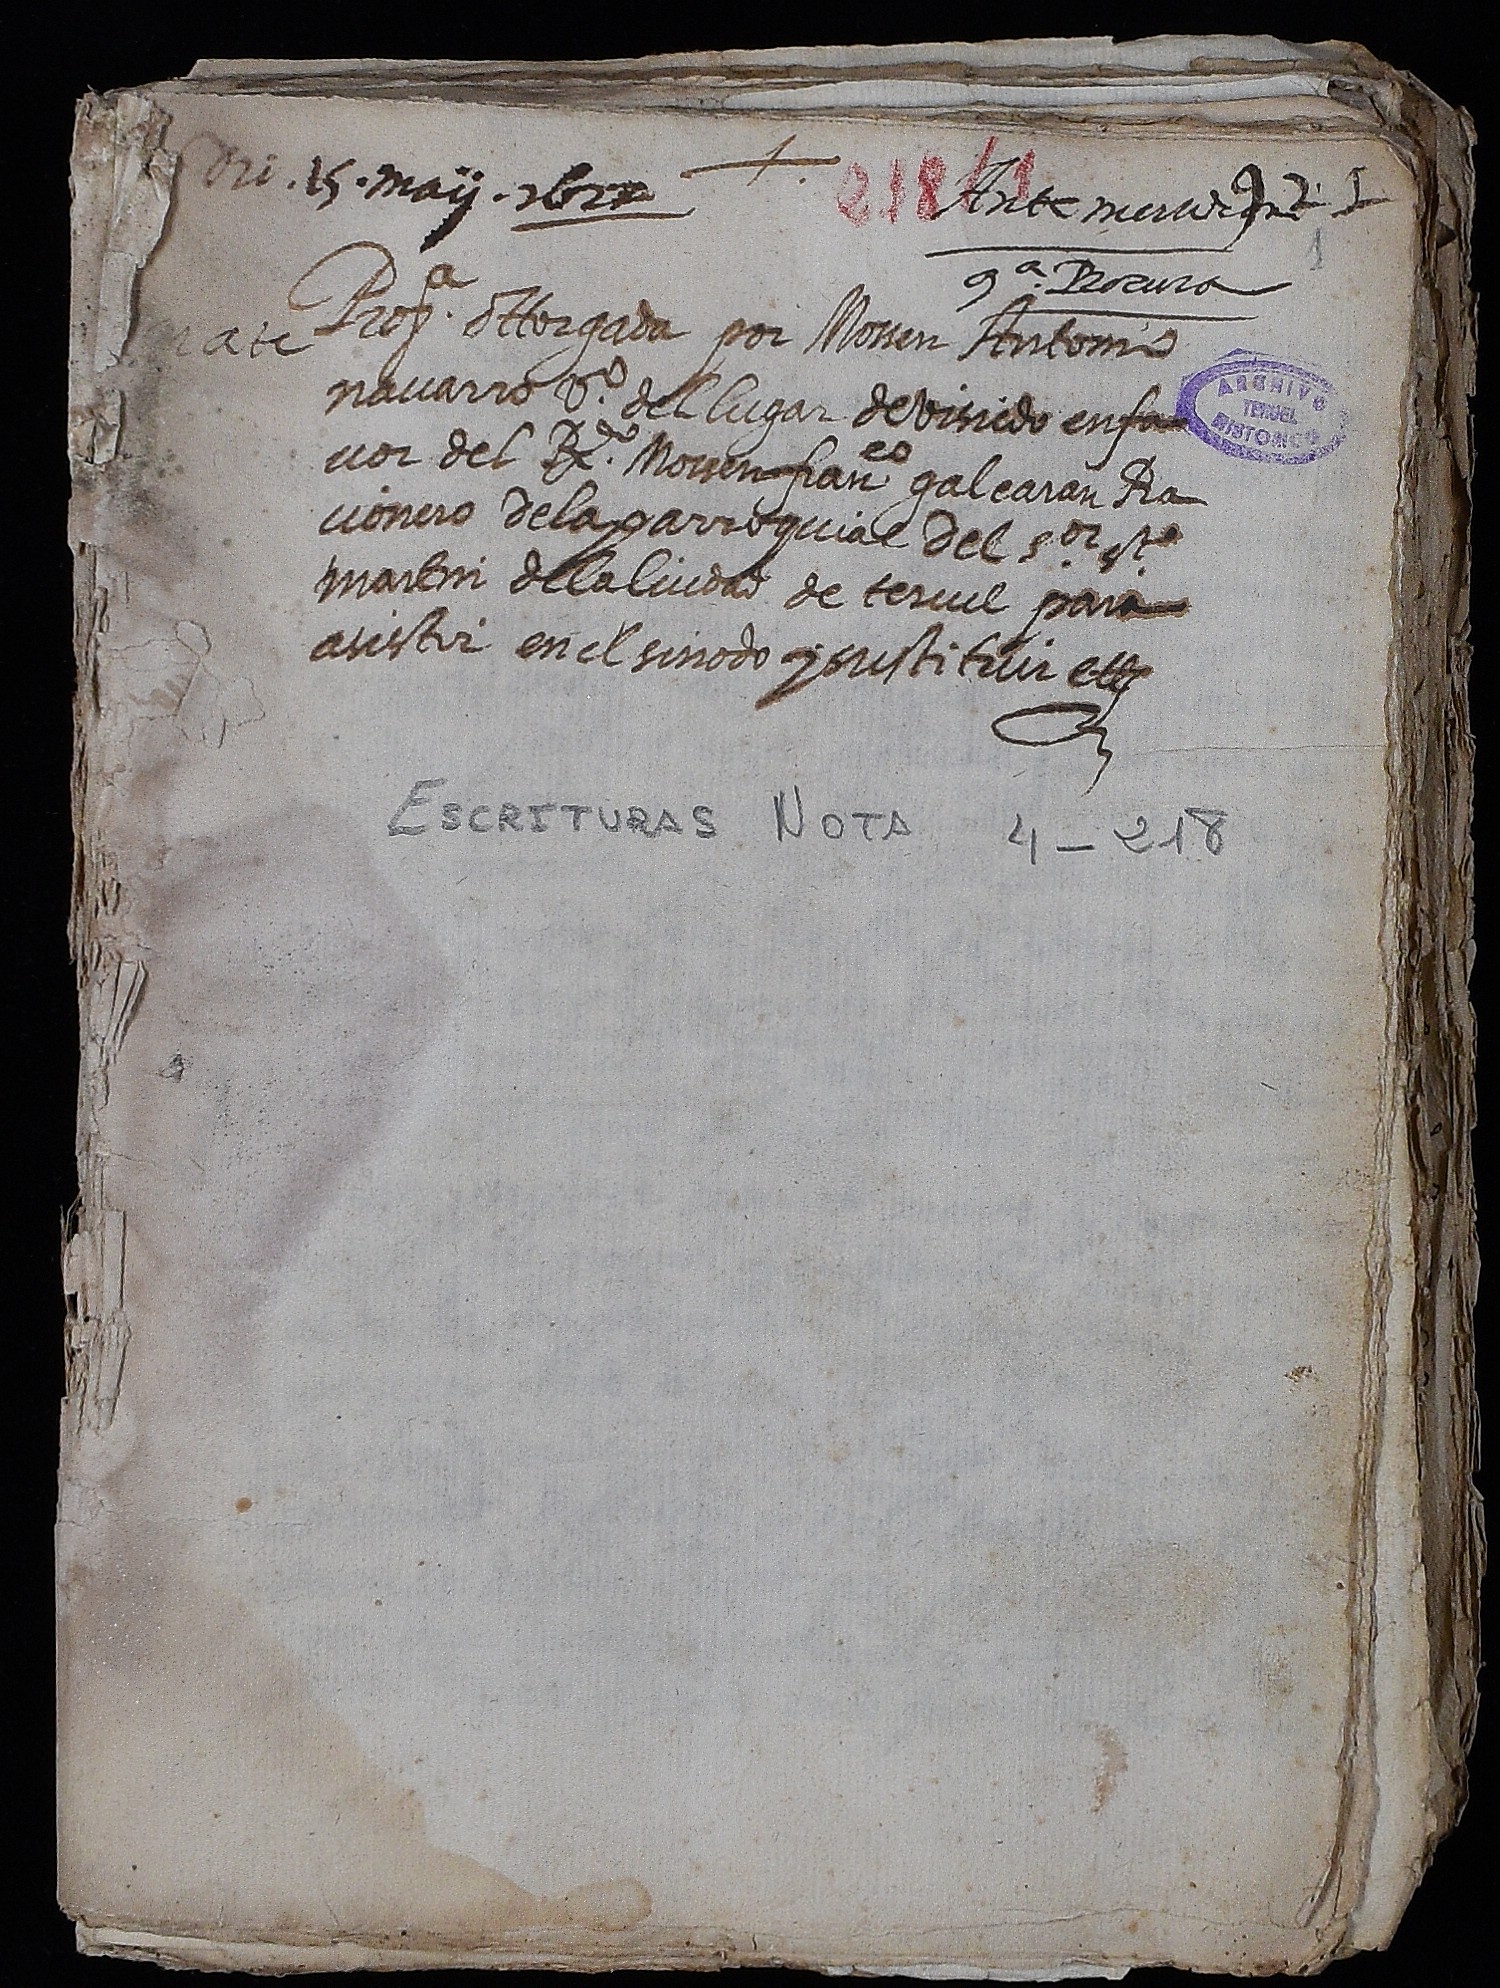 Dri. 15. maÿ. 1622 +. 218/1
Ante meridi
1
9.ª Procura
Proᵃ. ôttorgada por Mossen Antonio
nauarro vº. del lugar de visiedo en fa
uor del Rdo. Mossen franco galcaran Ra
cionero de la parroquial del sor. st
martin de la Ciudad de teruel para
asistir en el sinodo y sustituir ettz
ARCHIVO
TERUEL
HISTORICO
ESCRITURAS NOTA 4-218